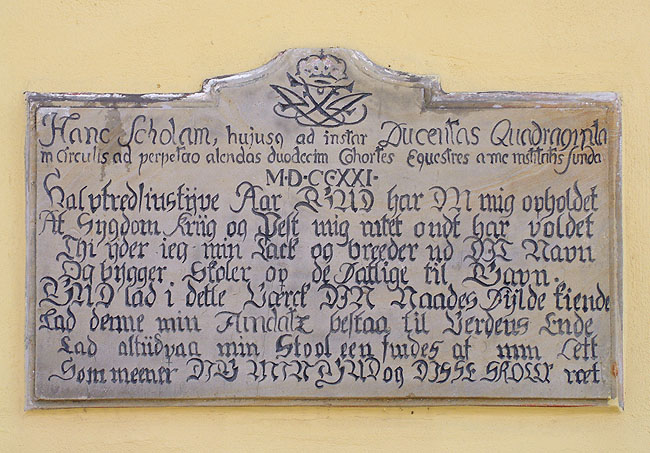 Hanc Scholam, hujusq ad instar Ducentas Quadraginta
in Circulis ad perpetuo alendas duodecim Cohortes Equestres a me institutis funda
M·D·CCXXI·
Halvtredsinstijve Aar GUD har DU mig opholdet
At Sygdom Kriig og Pest mig intet ondt har voldet
Thi yder ieg min Tack og breeder ud DIT Navn
Og bygger Skoler op de Fattige til Gavn.
GUD lad i dette Værck DIN Naades Fylde kiende
Lad denne min Fundatz bestaa til Verdens Ende
Lad altiid paa min Stool een findes af min Ætt
Som meener DIG MIN GUD og DISSE SKOLER ret.